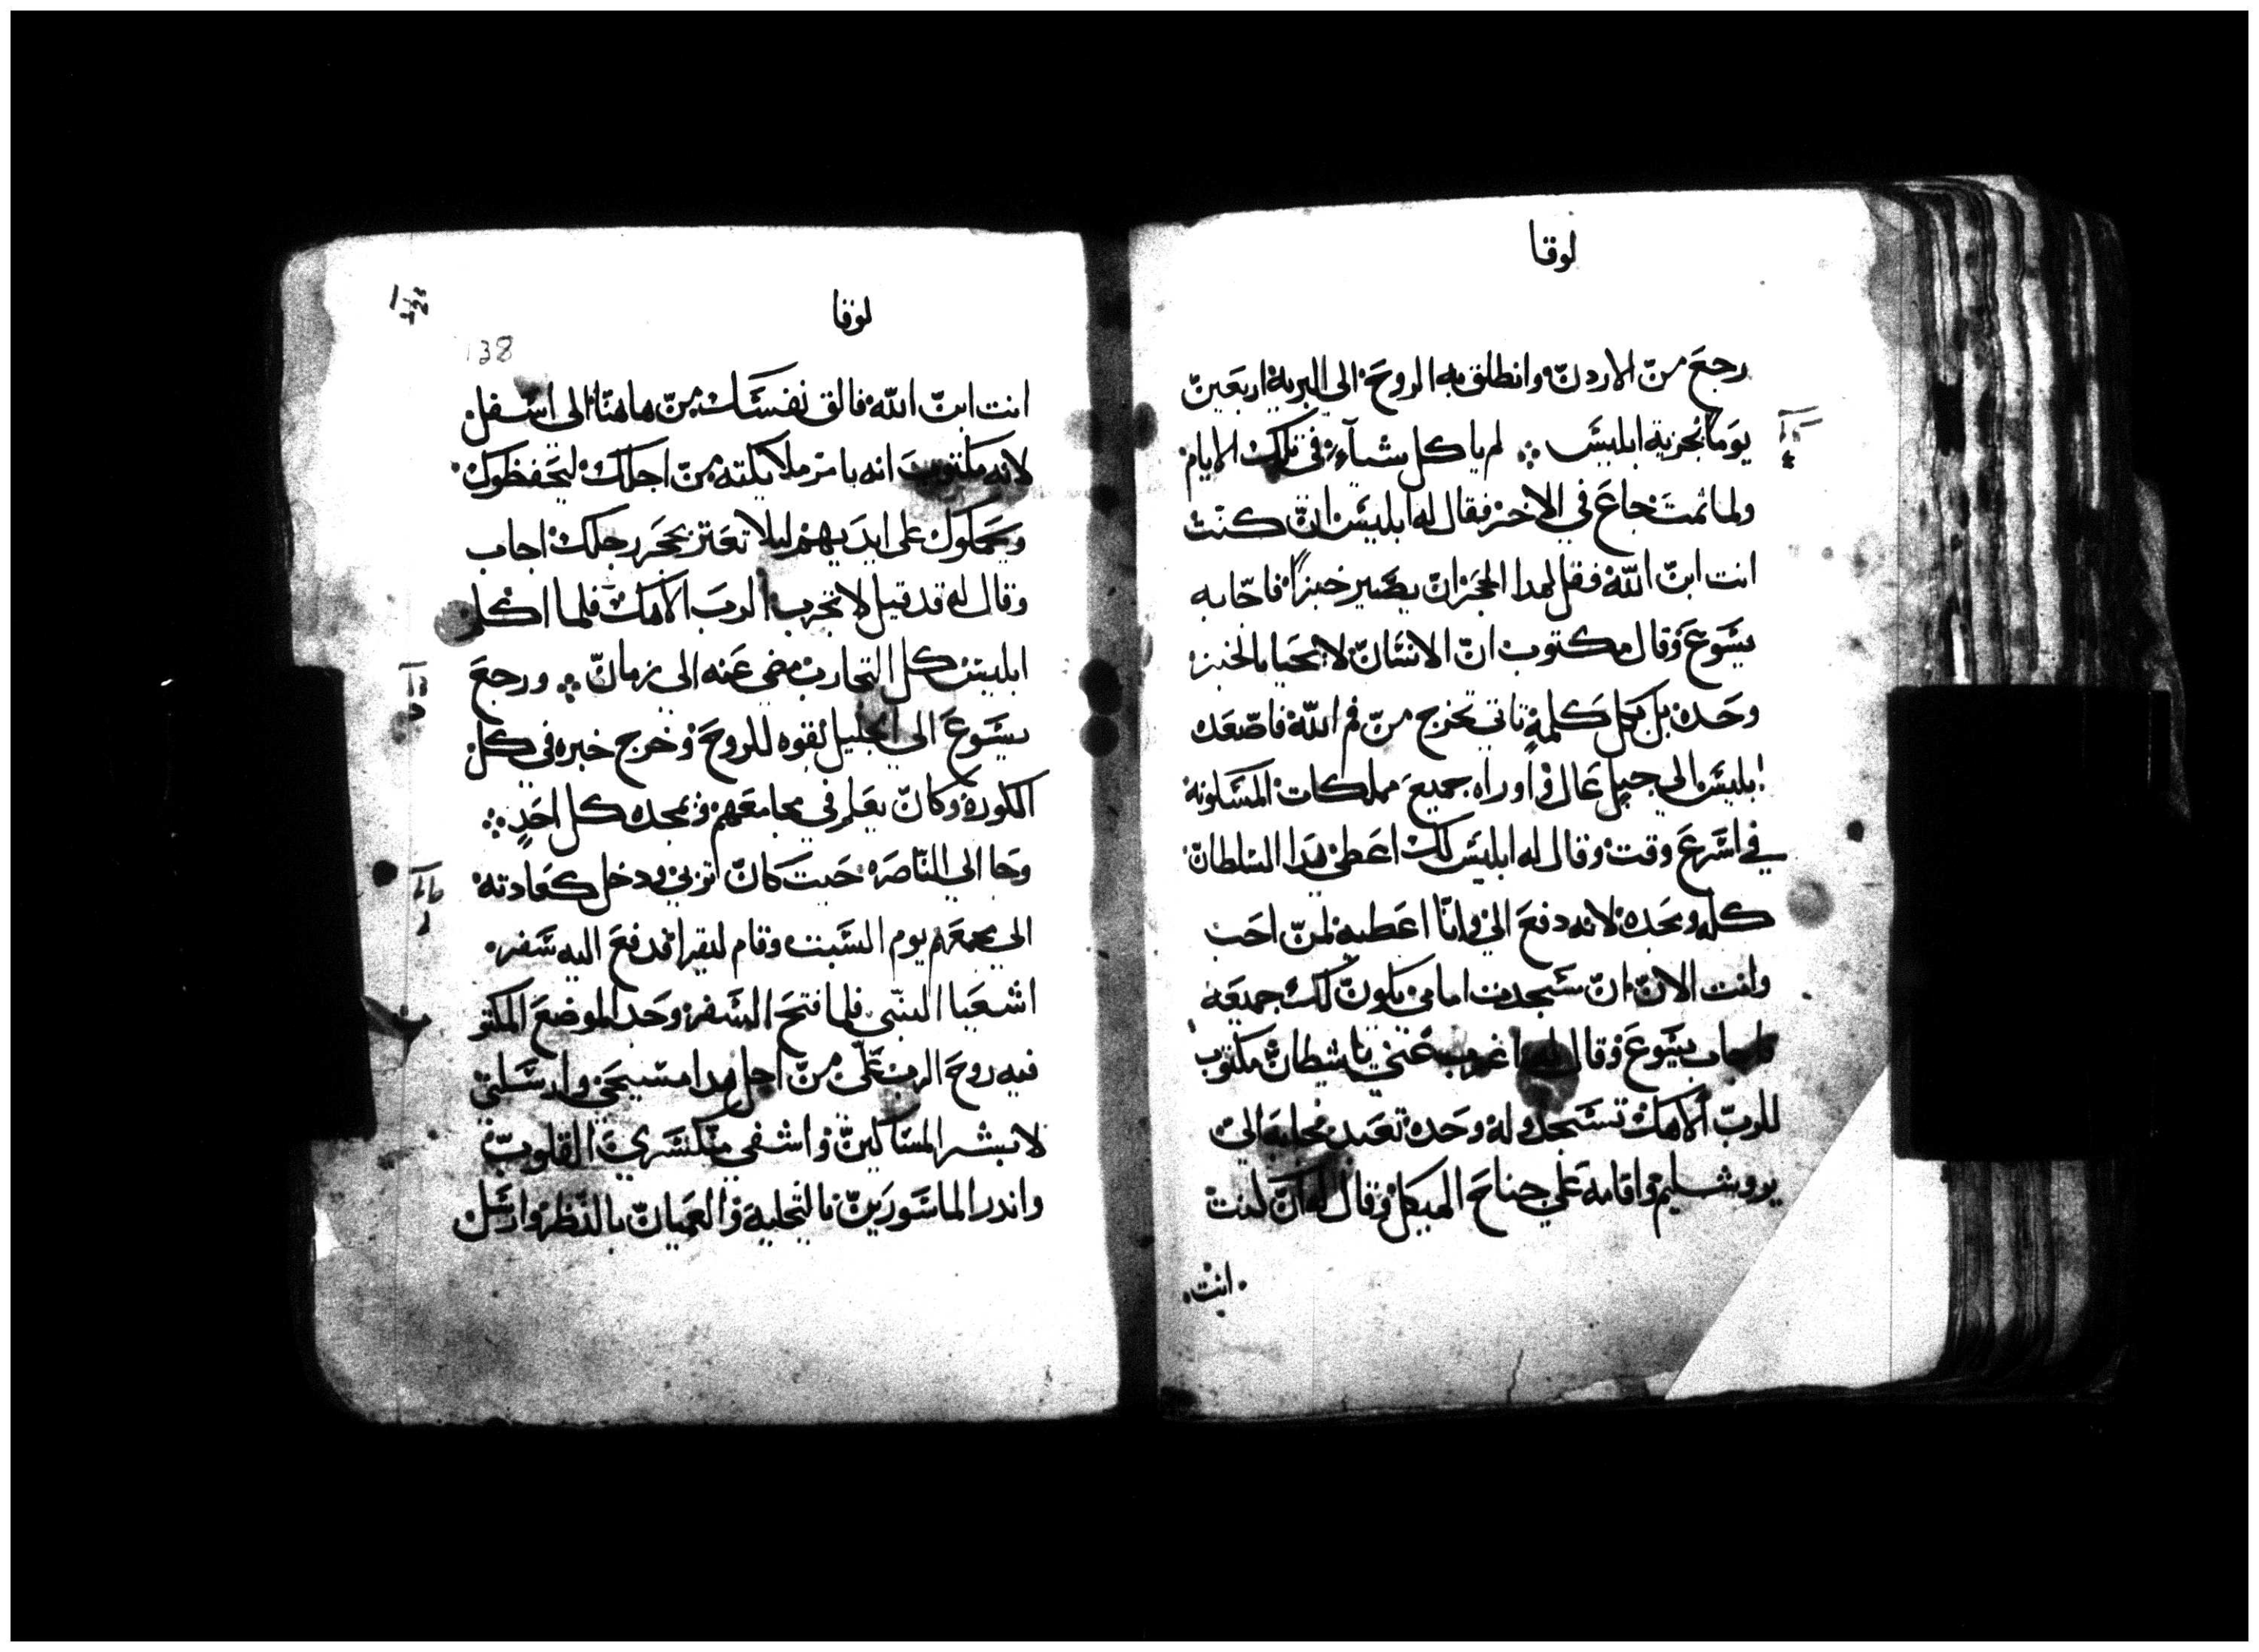 لوقا
رجع من الاردن وانطلق به الروح الي البرية اربعين
يوما يجربه ابليس ܀ لم ياكل شيآء في تلك الايام
ولما تمت جاع في الاخر فقال له ابليس ان كنت
انت ابن الله فقل لهدا الحجر ان يصير خبزاً فاجابه
يسوع وقال مكتوب ان الانسان لا يحيا بالخبز
وحده بل بكل كلمة تاتي تخرج من فم الله فاصعده
ابليس الي جبل عال واوراه جميع مملكات المسكونه
في اسرع وقت وقال له ابليس لك اعطي هدا السلطان
كله ومجده لانه دفع الي وانا اعطيه لمن احب
وانت الان ان سجدت امامي يكون لك جميعه
فاجاب يسوع وقال له اغرب عني يا شيطان مكتوب
للرب الاهك تسجد وله وحده تعبد فجابه الي
يروشليم واقامه علي جناح الهيكل وقال له ان كنت
انت
لوقا
138
انت ابن الله فالق نفسك من هاهنا الى اسفل
لانه مكتوب انه يامر ملايكته من اجلك ليحفظوك
ويحملوك على ايديهم ليلا تعتر بحجر رجلك اجاب
وقال له قد قيل لا تجرب الرب الاهك فلما اكمل
ابليس كل التجارب مضى عنه الى زمان ܀ ورجع
يسوع الي الجليل بقوه الروح وخرج خبره في كل
الكوره وكان يعلم في مجامعهم ويمجده كل احد ܀
وجا الي الناصره حيت كان اتربي ودخل كعادته
الي مجمعهم يوم السبت وقام ليقرا فدفع اليه سفر
اشعيا النبي فلما فتح السفر وجد الموضع المكتو
فيه روح الرب علي من اجل هدا مسيحني وارسلني
لابشر المساكين واشفي منكسري القلوب
واندر الماسورين بالتخلية والعميان بالنظر وارسل